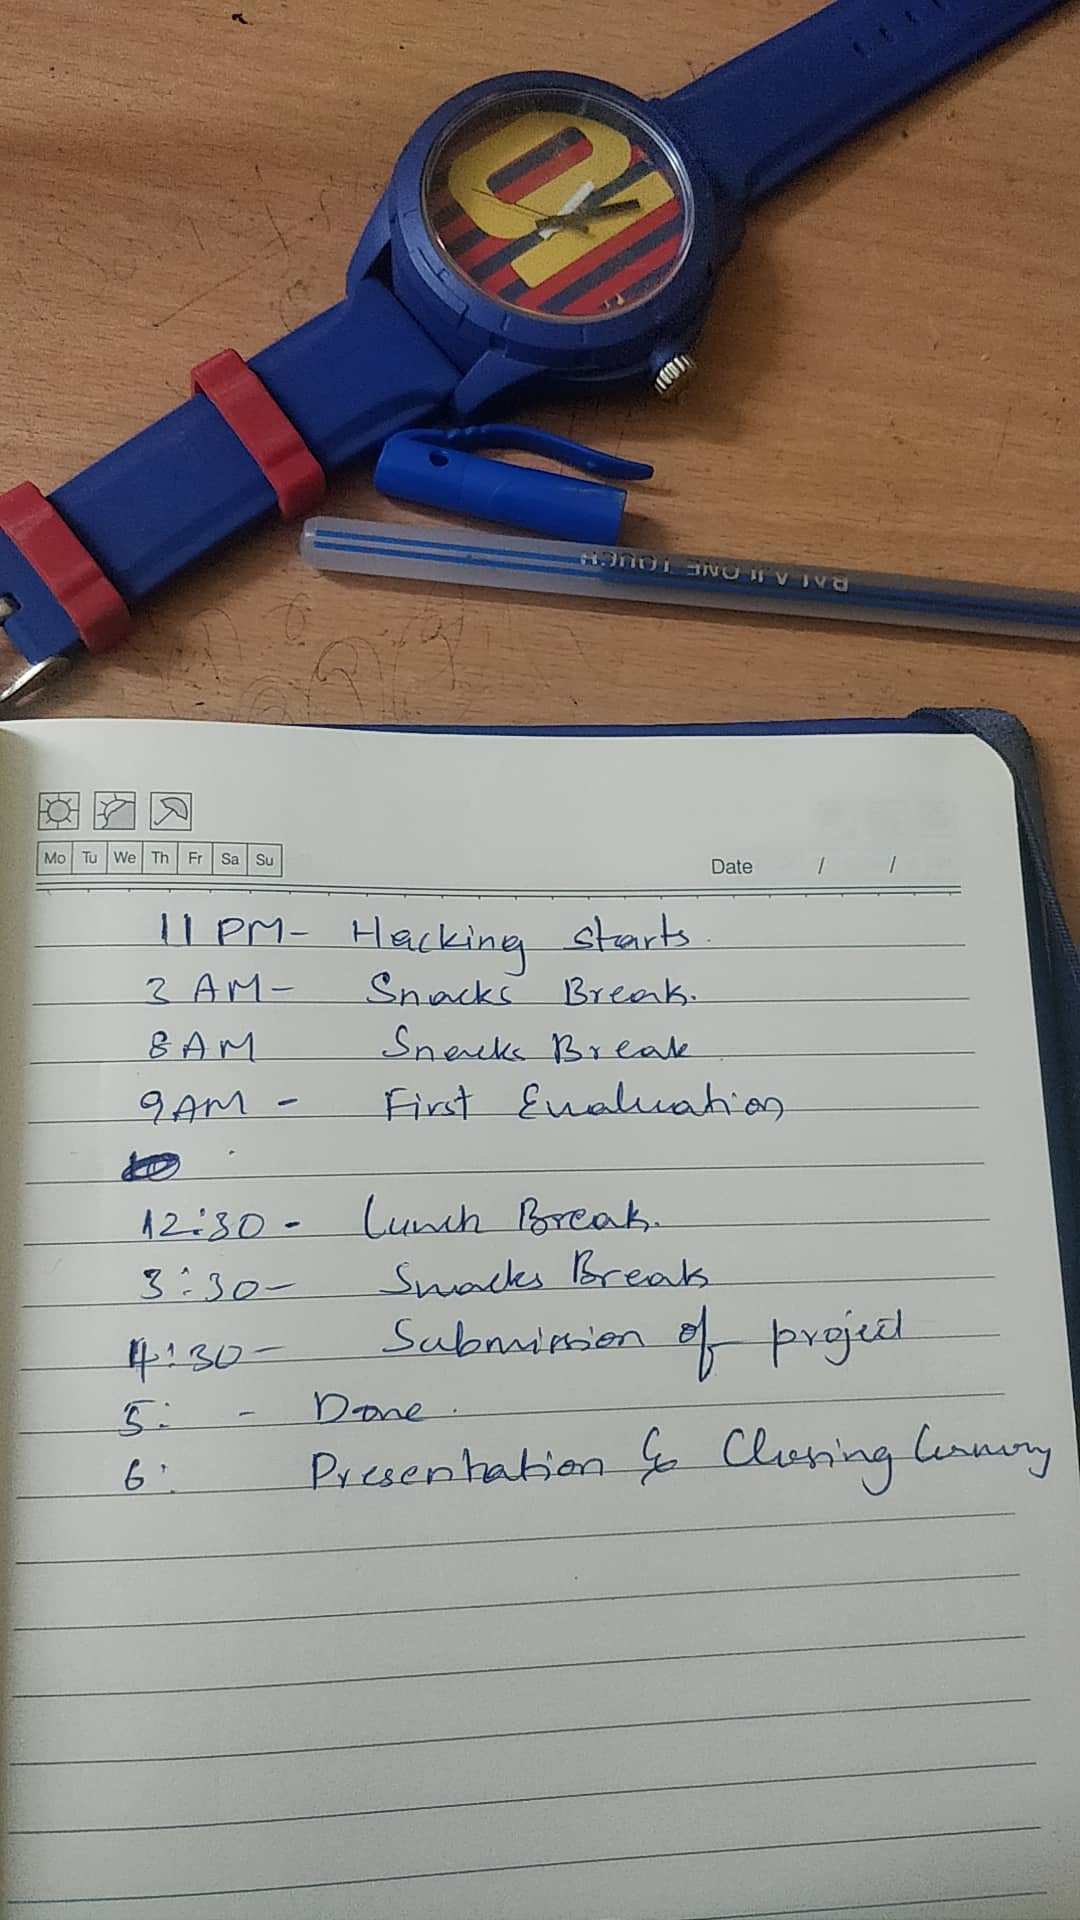 01
BALAJI ONE TOUCH
Mo Tu We Th Fr Sa Su
Date / /
11 PM- Hacking starts.
3 AM- Snacks Break.
8 AM Snacks Break
9 AM - First Evaluation
12:30 - Lunch Break.
3:30- Snacks Break
4:30- Submission of project
5: - Done.
6: Presentation & Closing